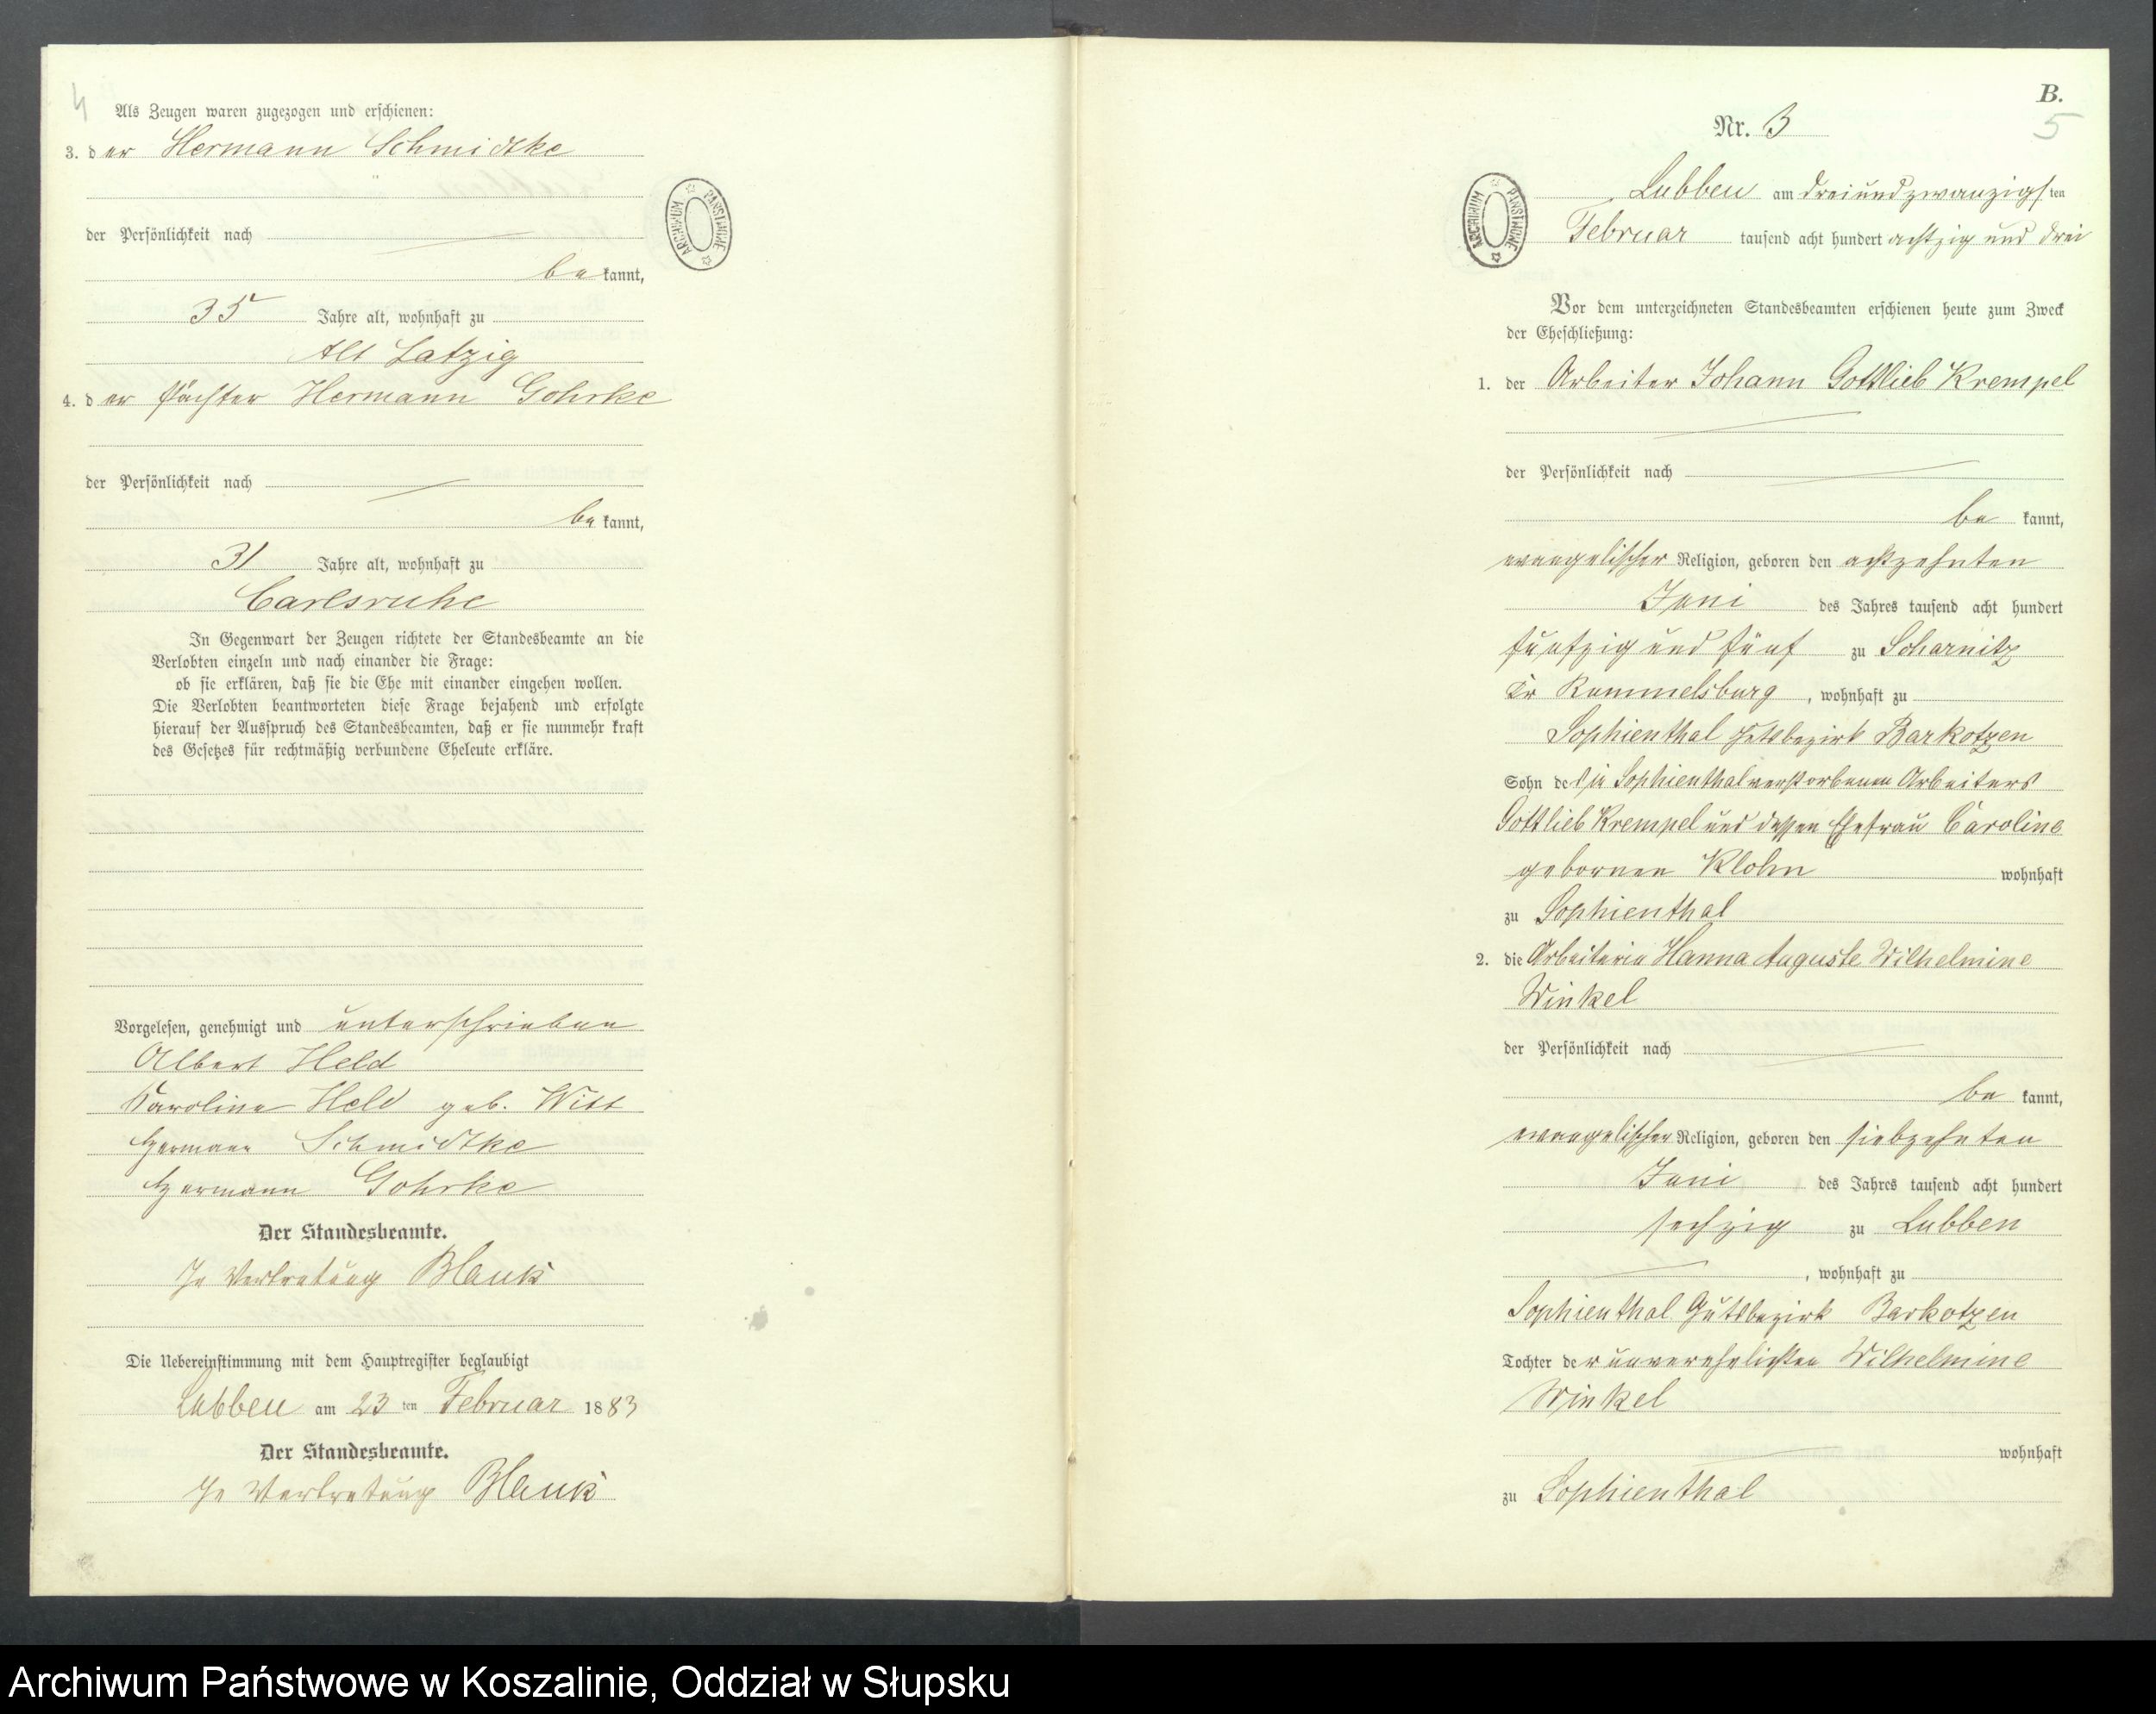 4
Als Zeugen waren zugezogen und erschienen:
3. der Hermann Schmidtke
der Persönlichkeit nach
be kannt,
35 Jahre alt, wohnhaft zu
Alt Latzig
4. der Pächter Hermann Gohrke
der Persönlichkeit nach
be kannt,
31 Jahre alt, wohnhaft zu
Carlsruhe
In Gegenwart der Zeugen richtete der Standesbeamte an die
Verlobten einzeln und nach einander die Frage:
ob sie erklären, daß sie die Ehe mit einander eingehen wollen.
Die Verlobten beantworteten diese Frage bejahend und erfolgte
hierauf der Ausspruch des Standesbeamten, daß er sie nunmehr kraft
des Gesetzes für rechtmäßig verbundene Eheleute erkläre.
Vorgelesen, genehmigt und unterschrieben
Albert Held
Karoline Held geb. Witt
Hermann Schmidtke
Hermann Gohrke
Der Standesbeamte.
In Vertretung Blank
Die Uebereinstimmung mit dem Hauptregister beglaubigt
Lubben am 23 ten Februar 1883
Der Standesbeamte.
In Vertretung Blank
ARCHIWUM PAŃSTWOWE
B.
5
Nr. 3
ARCHIWUM PAŃSTWOWE
Lubben am dreiundzwanzigsten
Februar tausend acht hundert achtzig und drei
Vor dem unterzeichneten Standesbeamten erschienen heute zum Zweck
der Eheschließung:
1. der Arbeiter Johann Gottlieb Krempel
der Persönlichkeit nach
be kannt,
evangelischer Religion, geboren den achtzehnten
Juni des Jahres tausend acht hundert
fünfzig und fünf zu Scharnitz
Kr Rummelsburg, wohnhaft zu
Sophienthal Gutsbezirk Barkotzen
Sohn des in Sophienthal verstorbenen Arbeiters
Gottlieb Krempel und dessen Ehefrau Caroline
gebornen Klohn wohnhaft
zu Sophienthal
2. die Arbeiterin Hanna Auguste Wilhelmine
Winkel
der Persönlichkeit nach
be kannt,
evangelischer Religion, geboren den siebzehnten
Juni des Jahres tausend acht hundert
sechzig zu Lubben
, wohnhaft zu
Sophienthal Gutsbezirk Barkotzen
Tochter der unverehelichten Wilhelmine
Winkel
wohnhaft
zu Sophienthal
Archiwum Państwowe w Koszalinie, Oddział w Słupsku